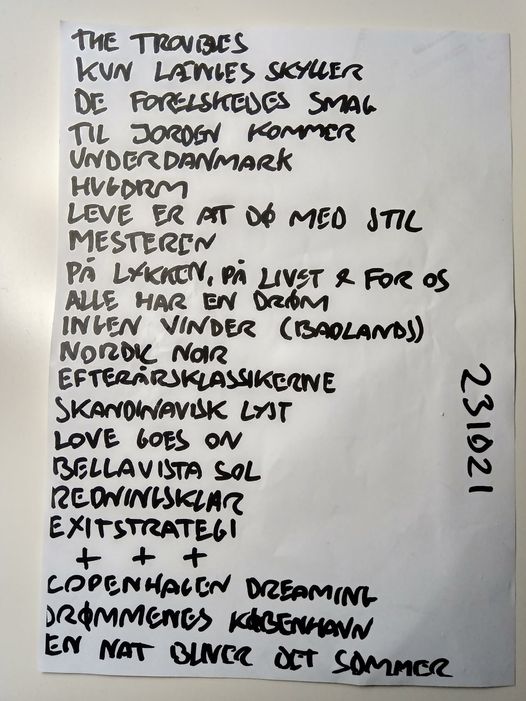 THE TROUBLES
KUN LÆNGES SKYLLER
DE FORELSKEDES SMAG
TIL JORDEN KOMMER
UNDERDANMARK
HUGORM
LEVE ER AT DØ MED STIL
MESTEREN
PÅ LYKKEN, PÅ LIVET & FOR OS
ALLE HAR EN DRØM
INGEN VINDER (BADLANDS)
NORDIC NOIR
EFTERÅRSKLASSIKERNE
SKANDINAVISK LYST
LOVE GOES ON
BELLAVISTA SOL
REDNINGSKLAR
EXITSTRATEGI
+ + +
COPENHAGEN DREAMING
DRØMMENES KØBENHAVN
EN NAT BLIVER DET SOMMER
231021